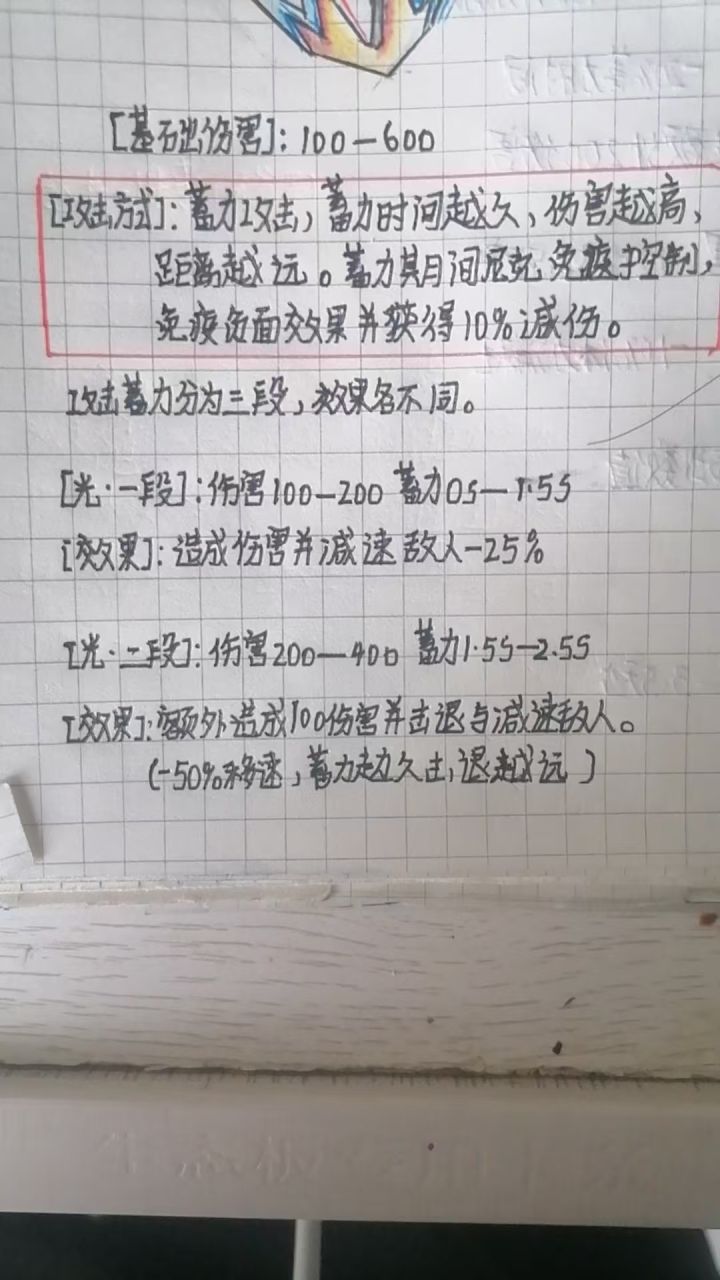 [基础伤害]: 100—600
[攻击方式]: 蓄力攻击, 蓄力时间越久, 伤害越高,
距离越远。蓄力其月间尼克免疫控制,
免疫负面效果并获得10%减伤。
攻击蓄力分为三段, 效果各不同。
[光·一段]: 伤害100—200 蓄力0S—1·5S
[效果]: 造成伤害并减速敌人-25%
[光·二段]: 伤害200—400 蓄力1·5S—2.5S
[效果]: 额外造成100伤害并击退与减速敌人。
(-50%移速, 蓄力越久击, 退越远)